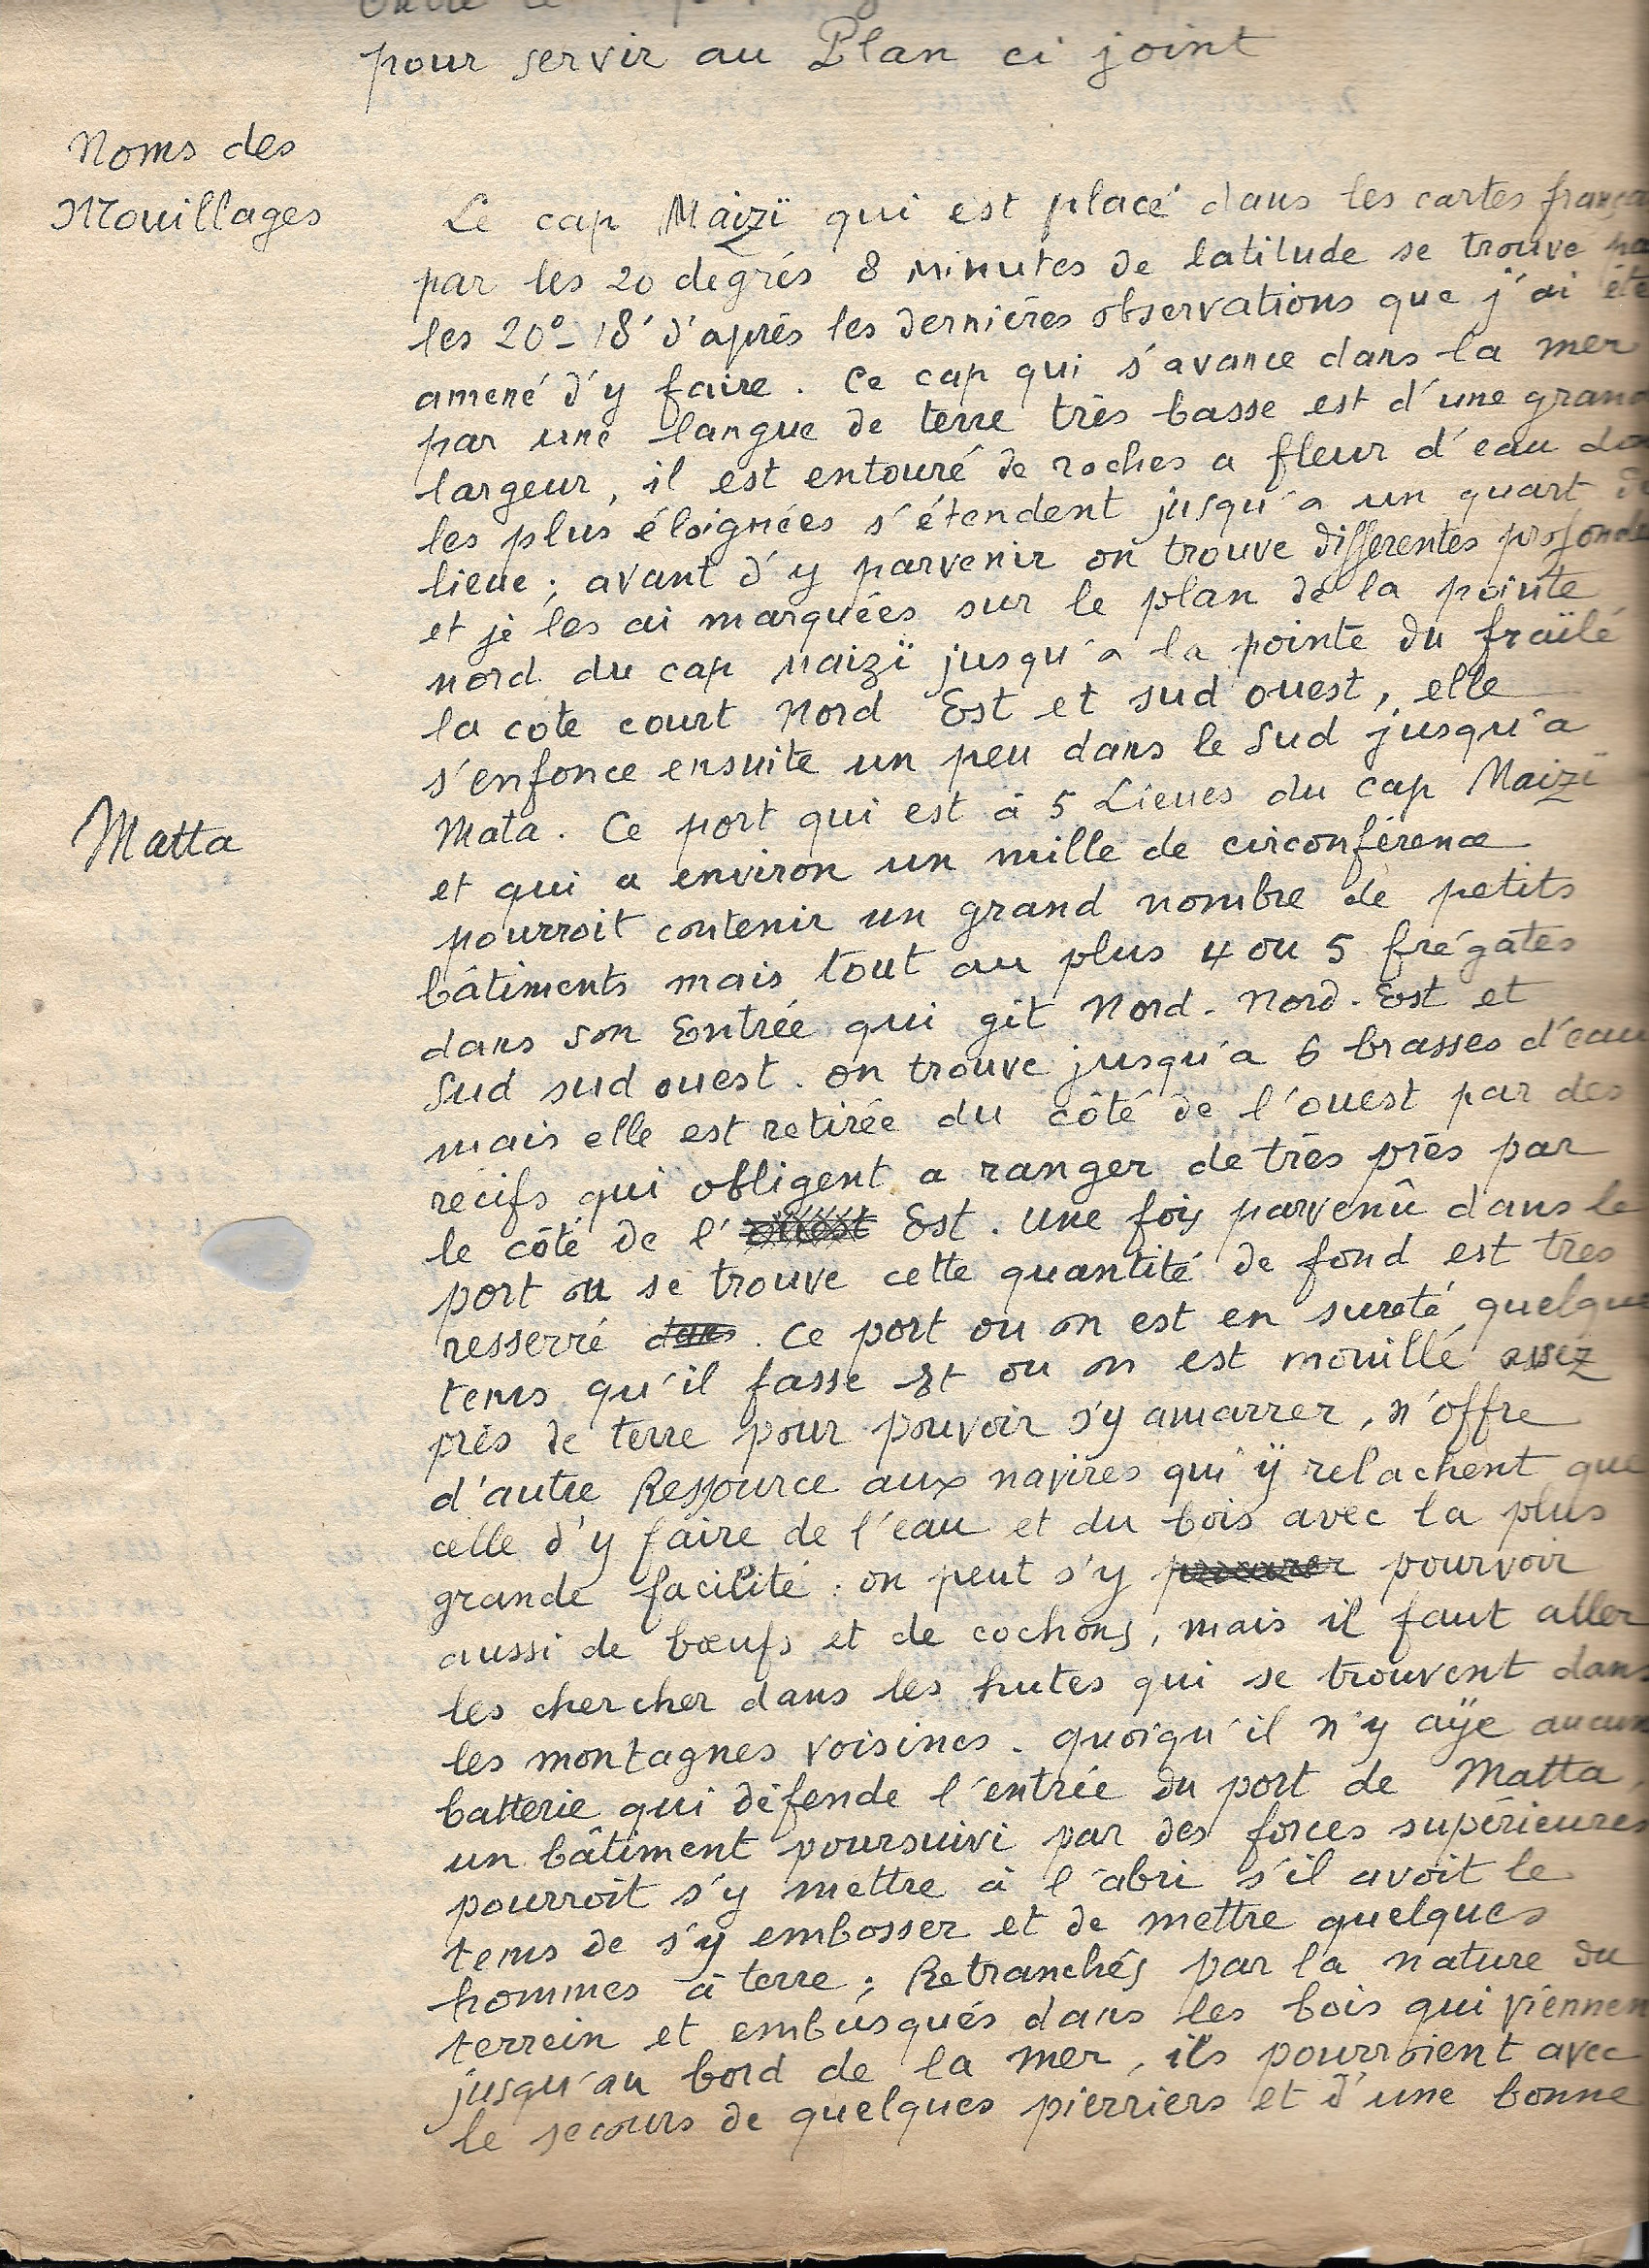 pour servir au Plan ci joint
Noms des
Mouillages
Le cap Maizï qui est placé dans les cartes frança
par les 20 degrés 8 minutes de latitude se trouve pa
les 20°- 18' d'après les dernières observations que j'ai été
amené d'y faire. Ce cap qui s'avance dans la mer
par une langue de terre très basse est d'une grand
largeur, il est entouré de roches a fleur d'eau don
les plus éloignées s'étendent jusqu'a un quart de
lieue; avant d'y parvenir on trouve differentes profonde
et je les ai marquées sur le plan de la pointe
nord du cap Maizï jusqu'a la pointe du fraïlé
la cote court Nord Est et sud ouest, elle
s'enfonce ensuite un peu dans le Sud jusqu'a
Matta
Mata. Ce port qui est à 5 Lieues du cap Maizï
et qui a environ un mille de circonférence
pourroit contenir un grand nombre de petits
bâtiments mais tout au plus 4 ou 5 frégates
dans son Entrée qui git Nord-Nord-Est et
Sud sud ouest. on trouve jusqu'a 6 brasses d'eau
mais elle est retirée du côté de l'ouest par des
récifs qui obligent a ranger de très près par
le côté de l' ouest Est. Une fois parvenû dans le
port ou se trouve cette quantité de fond est tres
resserré dans. Ce port ou on est en sureté quelque
tems qu'il fasse Et ou on est mouillé assez
près de terre pour pouvoir s'y amarrer, n'offre
d'autre Ressource aux navires qui ÿ relachent que
celle d'y faire de l'eau et du bois avec la plus
grande facilité: on peut s'y procurer pourvoir
aussi de bœufs et de cochons, mais il faut aller
les chercher dans les hutes qui se trouvent dans
les montagnes voisines. quoiqu'il n'y aÿe aucun
batterie qui défende l'entrée du port de Matta,
un bâtiment poursuivi par des forces supérieures
pourroit s'y mettre à l'abri s'il avoit le
tems de s'y embosser et de mettre quelques
hommes à terre; Retranchés par la nature du
terrein et embusqués dans les bois qui viennen
jusqu'au bord de la mer, ils pourroient avec
le secours de quelques pierriers et d'une bonne